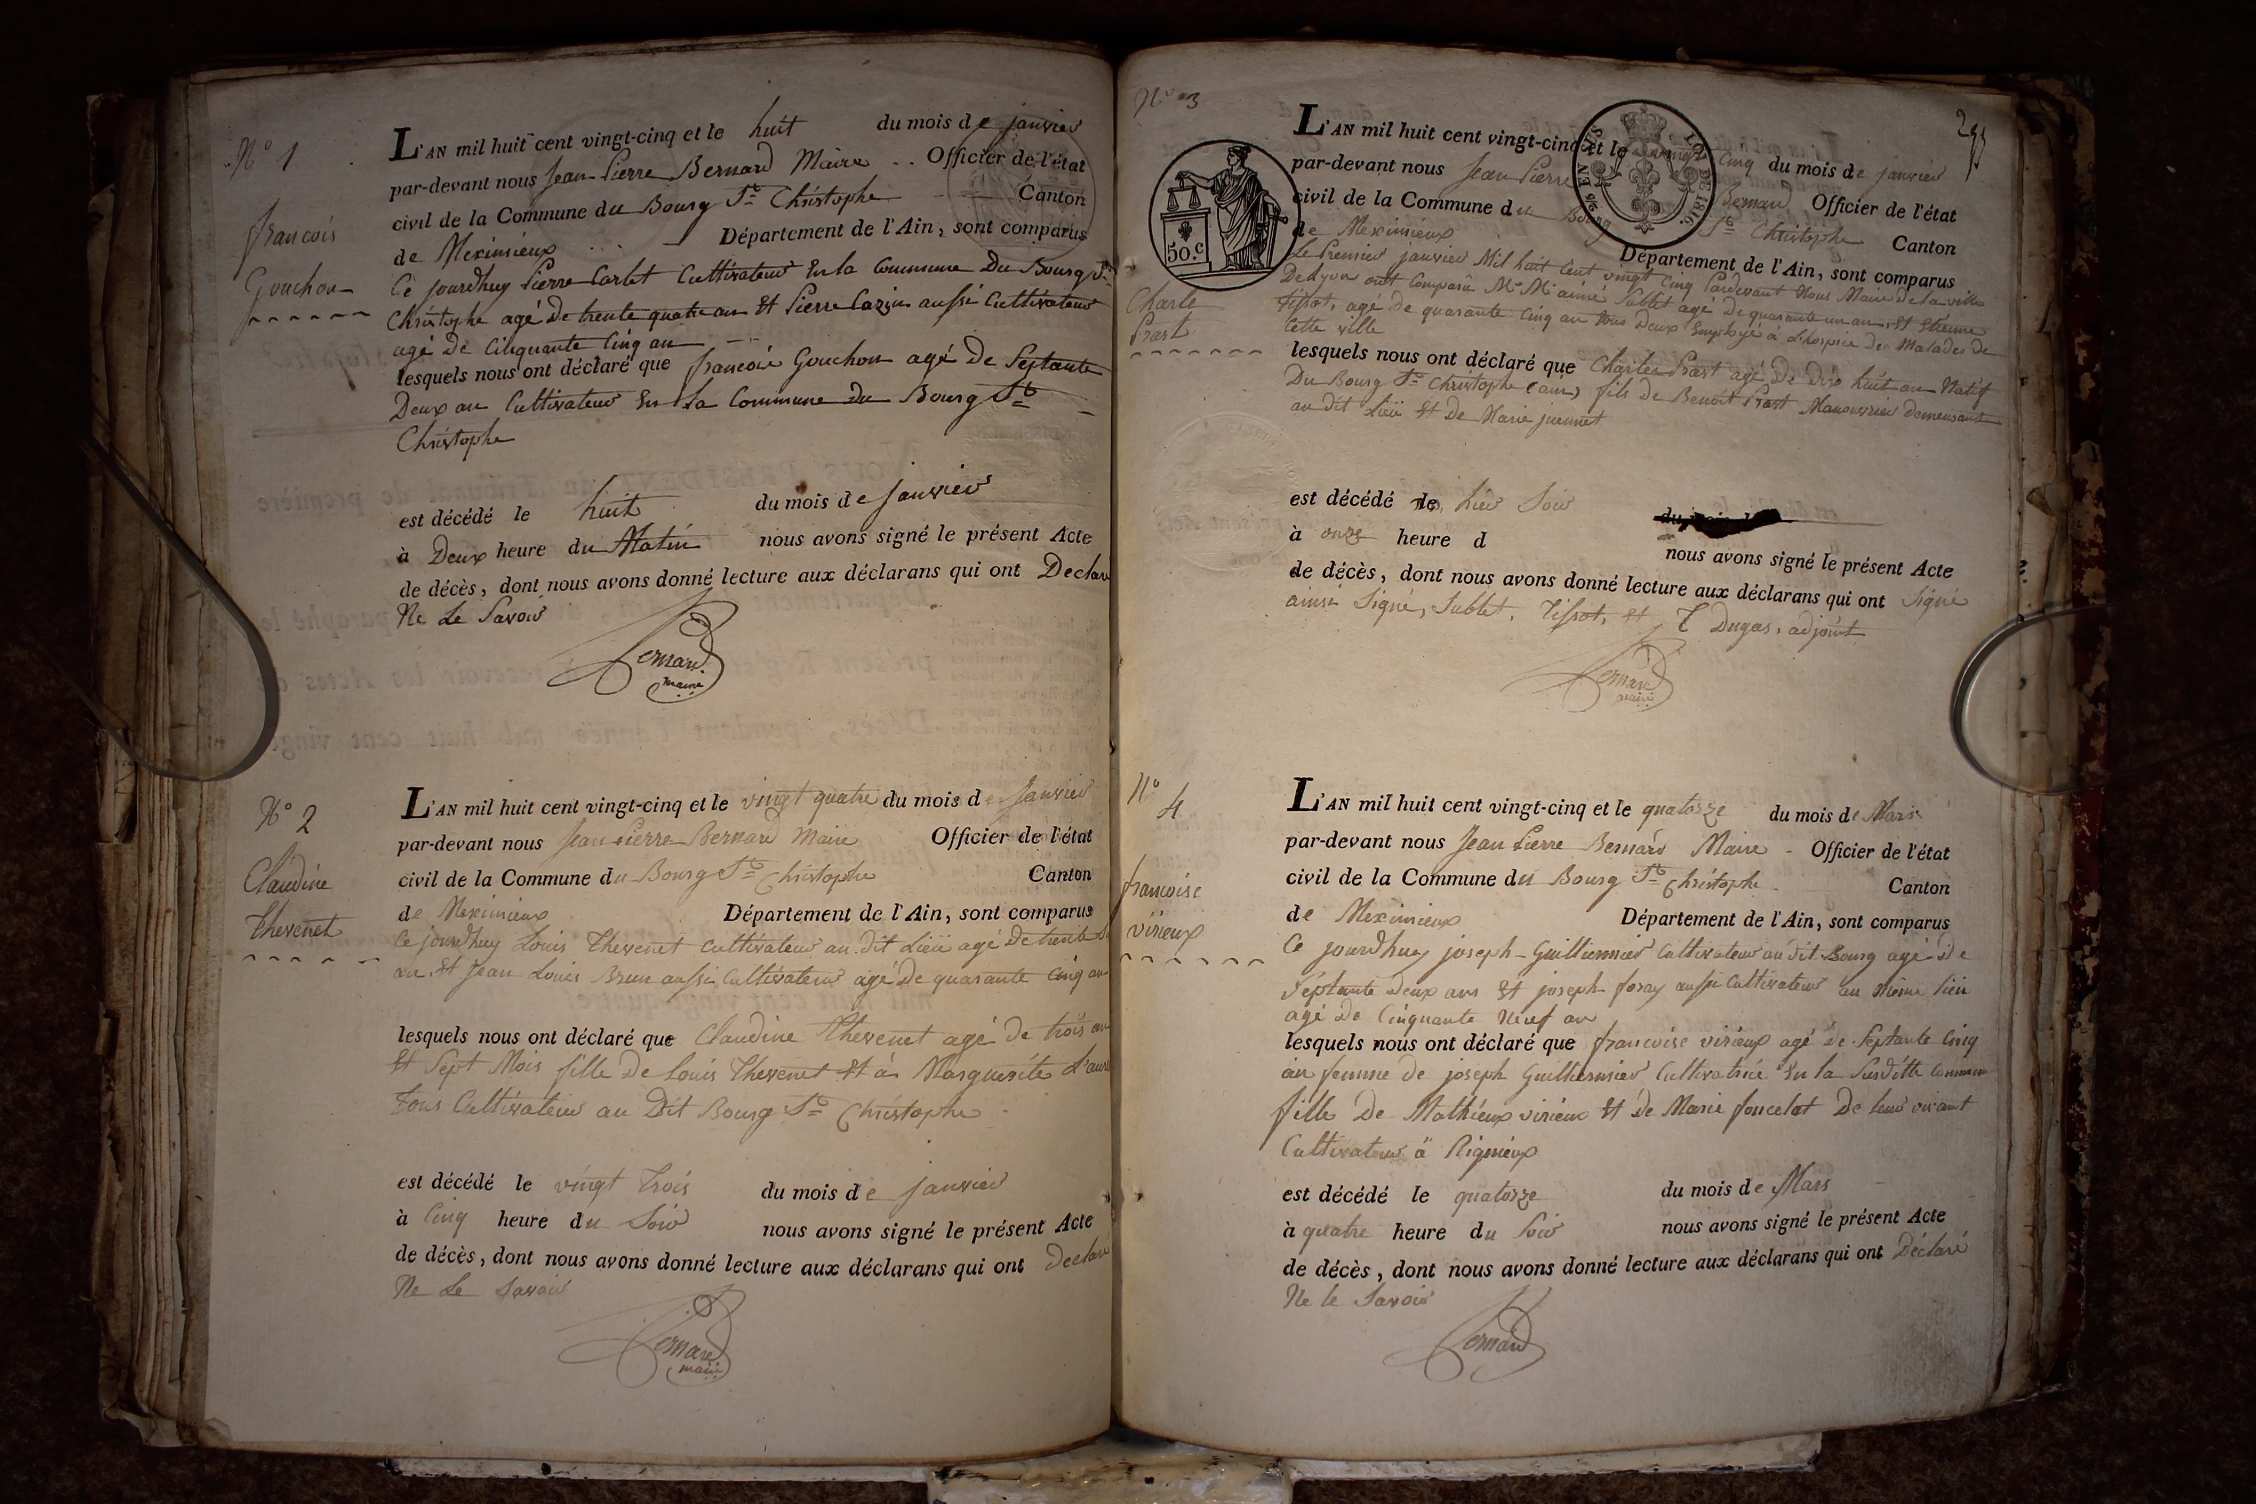 N° 1
francois
Gouchon
L'AN mil huit cent vingt-cinq et le huit du mois de janvier
par-devant nous Jean Pierre Bernard Maire Officier de l'état
civil de la Commune du Bourg St Christophe Canton
de Meximieux Département de l'Ain, sont comparus
Ce jourdhuy Pierre Carlet Cultivateur En la Commune Du Bourg St
Christophe agé De trente quatre an Et Pierre Cazin aussi Cultivateur
agé De Cinquante Cinq an
lesquels nous ont déclaré que francois Gouchon agé De Septante
Deux an Cultivateur En La Commune du Bourg St
Christophe
est décédé le huit du mois de janvier
à Deux heure du Matin nous avons signé le présent Acte
de décès, dont nous avons donné lecture aux déclarans qui ont Declaré
Ne Le Savoir
Bernard
maire
N° 2
Claudine
Thevenet
L'AN mil huit cent vingt-cinq et le vingt quatre du mois de Janvier
par-devant nous Jean Pierre Bernard Maire Officier de l'état
civil de la Commune du Bourg St Christophe Canton
de Meximieux Département de l'Ain, sont comparus
Ce jourdhuy Louis Thevenet Cultivateur au dit Lieu agé De trente
an Et Jean Louis Brun aussi Cultivateur agé De quarante Cinq an
lesquels nous ont déclaré que Claudine Thevenet agé De trois an
Et Sept Mois fille De Louis Thevenet Et à Marguerite
tous Cultivateur au Dit Bourg St Christophe
est décédé le vingt Trois du mois de janvier
à Cinq heure du Soir nous avons signé le présent Acte
de décès, dont nous avons donné lecture aux déclarans qui ont Declaré
Ne Le Savoir
Bernard
maire
N° 3
Charle
Prast
50.c
EN SUS LOI DE 1816.
L'AN mil huit cent vingt-cinq et le Cinq du mois de janvier
par-devant nous Jean Pierre Bernard Officier de l'état
civil de la Commune du Bourg St Christophe Canton
de Meximieux Département de l'Ain, sont comparus
Le Premier janvier Mil huit Cent vingt Cinq Pardevant Nous Maire De la ville
De Lyon ont Comparu Mr Mr aimé Sublet agé De quarante un an Et Etienne
Tissot, agé De quarante Cinq an tous Deux Employé à L'hospice Des Malades De
Cette ville
lesquels nous ont déclaré que Charles Prast agé De Dix huit an Natif
Du Bourg St Christophe (ain) fils de Benoit Prast Manouvrier demeurant
au dit Lieu Et De Marie
est décédé hier Soir
à onze heure d nous avons signé le présent Acte
de décès, dont nous avons donné lecture aux déclarans qui ont Signé
ainsi Signé, Sublet, Tissot, Et Dugas, adjoint
Bernard
maire
N° 4
francoise
virieux
L'AN mil huit cent vingt-cinq et le quatorze du mois de Mars
par-devant nous Jean Pierre Bernard Maire Officier de l'état
civil de la Commune du Bourg St Christophe Canton
de Meximieux Département de l'Ain, sont comparus
Ce jourdhuy joseph Guillermier Cultivateur au dit Bourg agé De
Septante Deux ans Et joseph foray aussi Cultivateur au Même Lieu
agé De Cinquante Neuf an
lesquels nous ont déclaré que francoise virieux agé de Septante Cinq
an femme de joseph Guillermier Cultivatrice En la Susditte Commune
fille De Mathieux virieux Et de Marie foncelot De leur vivant
Cultivateur à Rignieux
est décédé le quatorze du mois de Mars
à quatre heure du Soir nous avons signé le présent Acte
de décès, dont nous avons donné lecture aux déclarans qui ont Déclaré
Ne le Savoir
Bernard